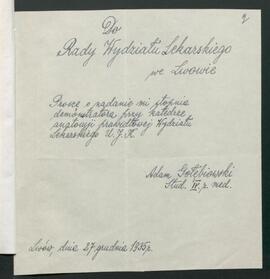 2
Do
Rady Wydziału Lekarskiego
we Lwowie
Proszę o nadanie mi stopnia
demonstratora przy katedrze
anatomji prawidłowej Wydziału
Lekarskiego U.J.K.
Adam Gołębiowski
Stud. II r. med.
Lwów, dnia 27 grudnia 1935 r.